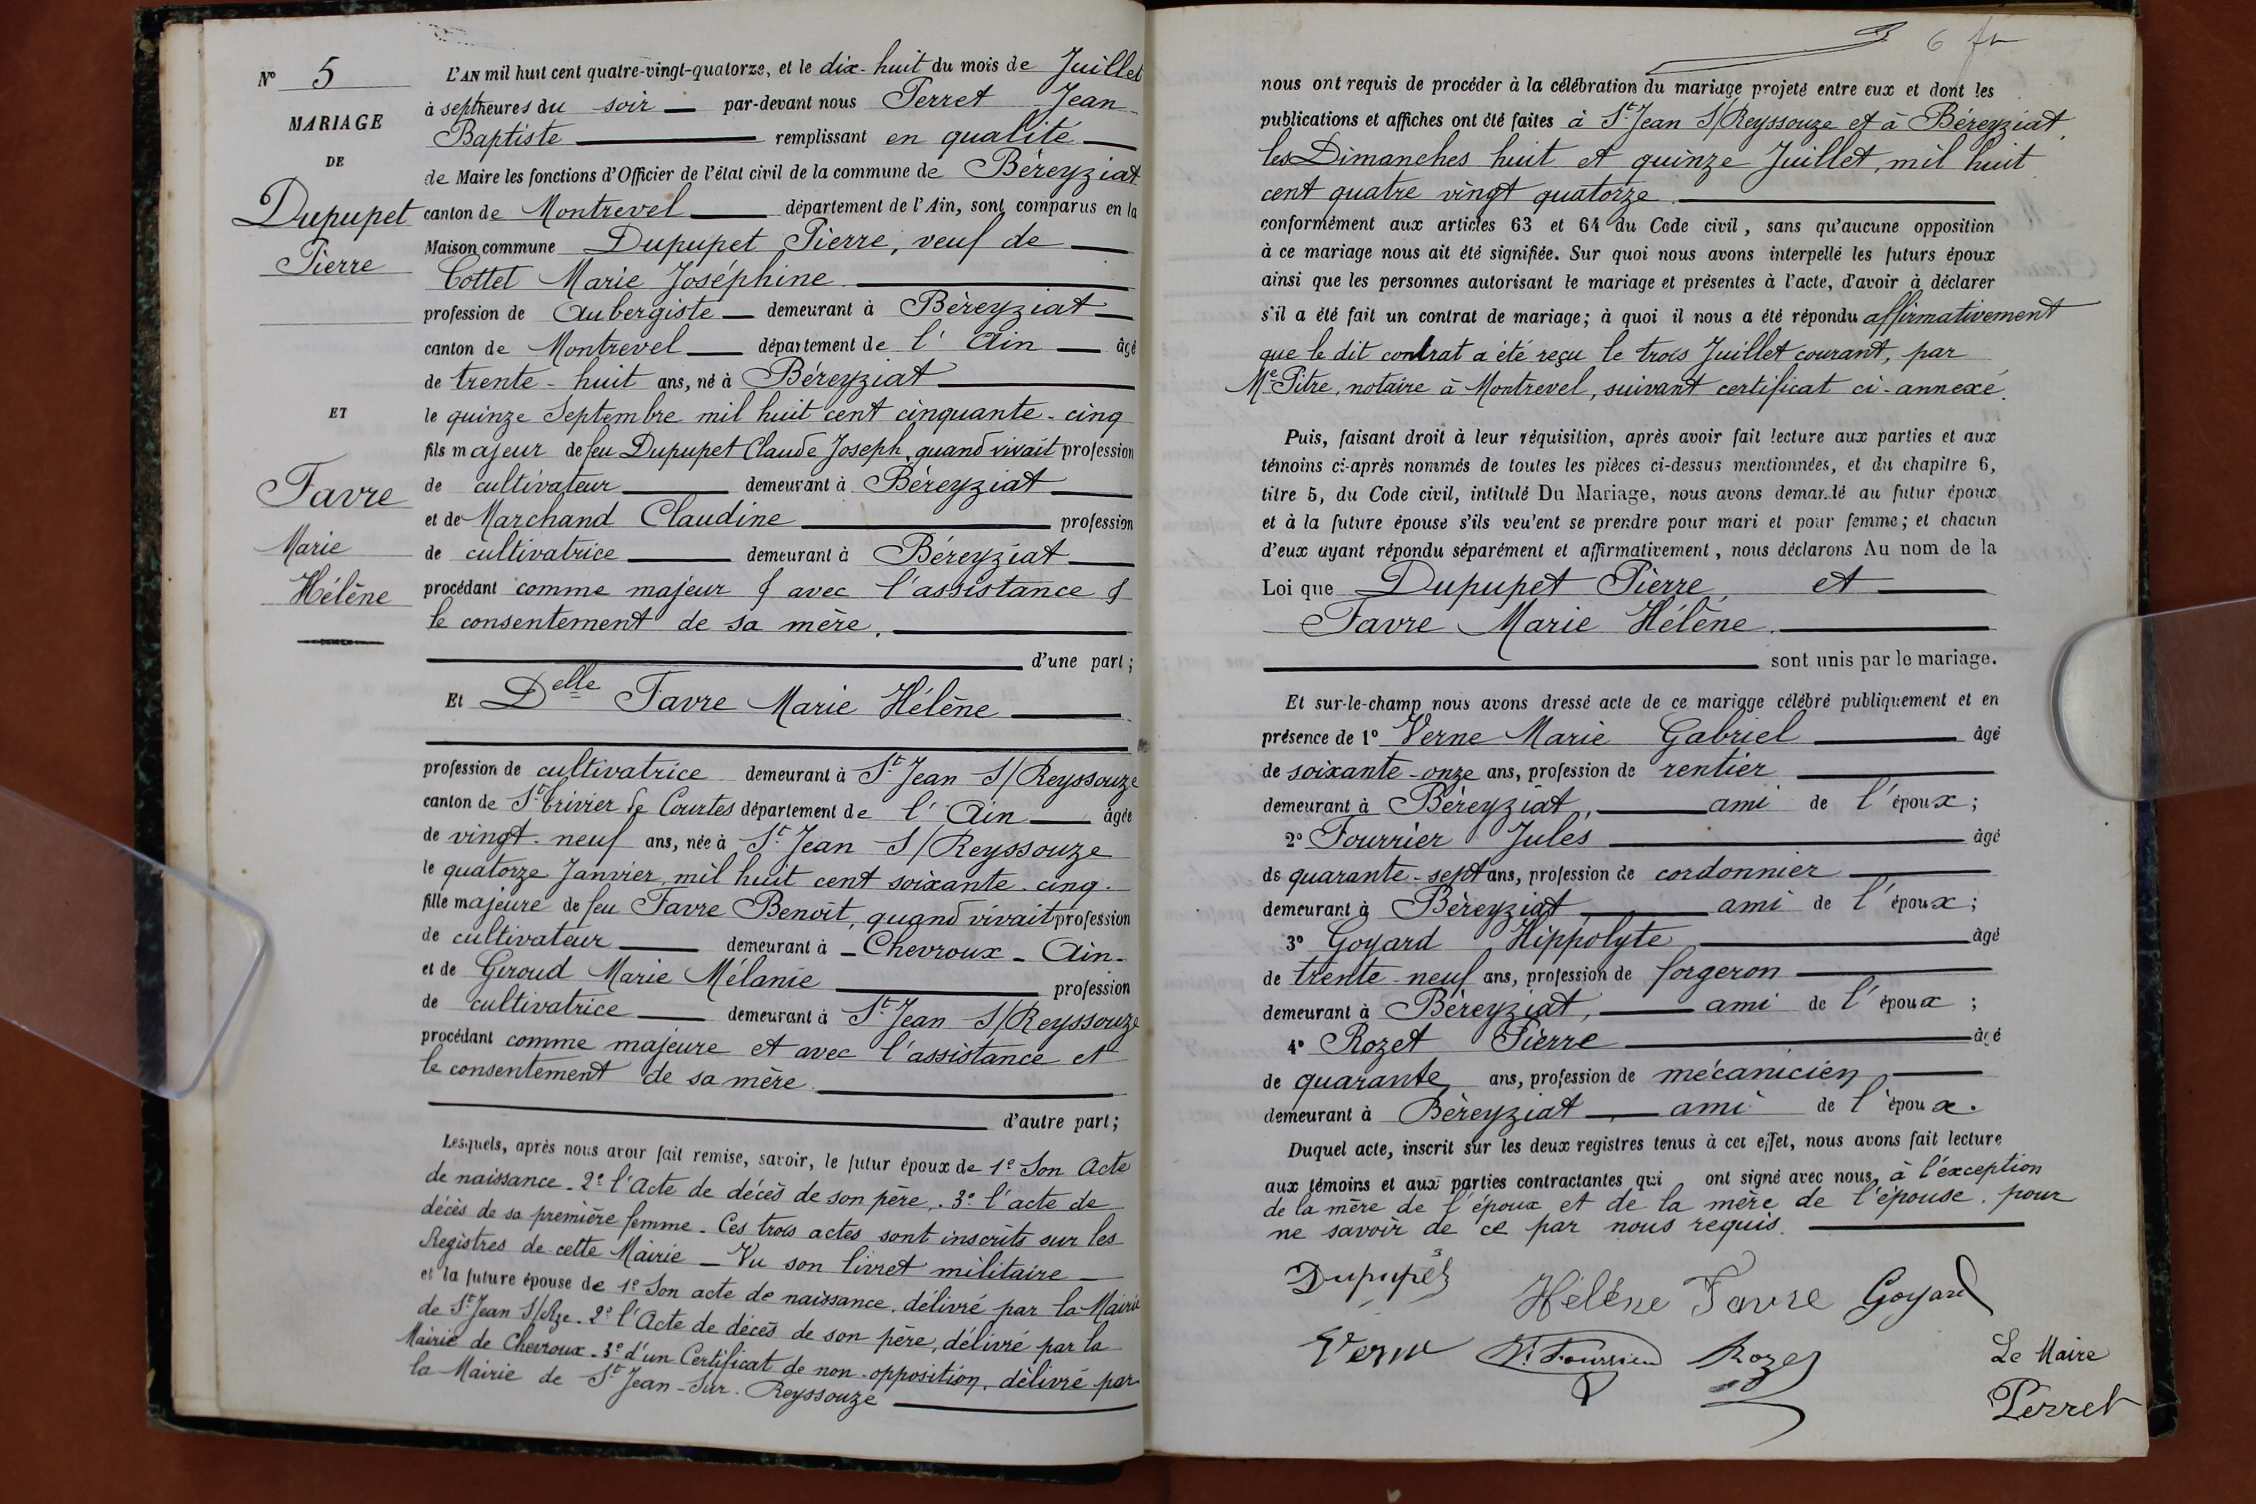 N° 5
MARIAGE
DE
Dupupet
Pierre
ET
Favre
Marie
Hélène
L'AN mil huit cent quatre-vingt-quatorze, et le dix-huit du mois de Juillet
à sept heures du soir — par-devant nous Perret Jean
Baptiste — remplissant en qualité —
de Maire les fonctions d'Officier de l'état civil de la commune de Béreyziat
canton de Montrevel — département de l'Ain, sont comparus en la
Maison commune Dupupet Pierre, veuf de —
Cottet Marie Joséphine —
profession de Aubergiste — demeurant à Béreyziat —
canton de Montrevel — département de l'Ain — âgé
de trente-huit ans, né à Béreyziat —
le quinze Septembre mil huit cent cinquante-cinq
fils majeur de feu Dupupet Claude Joseph, quand vivait profession
de cultivateur — demeurant à Béreyziat —
et de Marchand Claudine — profession
de cultivatrice — demeurant à Béreyziat —
procédant comme majeur & avec l'assistance &
le consentement de sa mère. —
— d'une part;
Et Delle Favre Marie Hélène —
profession de cultivatrice demeurant à St Jean S/Reyssouze
canton de St Trivier de Courtes département de l'Ain — âgée
de vingt-neuf ans, née à St Jean S/Reyssouze
le quatorze Janvier mil huit cent soixante-cinq.
fille majeure de feu Favre Benoît, quand vivait profession
de cultivateur — demeurant à - Chevroux - Ain-
et de Geroud Marie Mélanie — profession
de cultivatrice — demeurant à St Jean S/Reyssouze
procédant comme majeure et avec l'assistance et
le consentement de sa mère. —
— d'autre part;
Lesquels, après nous avoir fait remise, savoir, le futur époux de 1° Son Acte
de naissance. 2° l'Acte de décès de son père. 3° l'acte de
décès de sa première femme. Ces trois actes sont inscrits sur les
Registres de cette Mairie — Vu son livret militaire —
et la future épouse de 1° Son acte de naissance, délivré par la Mairie
de St Jean S/Rze. 2° l'Acte de décès de son père, délivré par la
Mairie de Chevroux. 3° d'un Certificat de non-opposition, délivré par
la Mairie de St Jean-Sur-Reyssouze —
6
nous ont requis de procéder à la célébration du mariage projeté entre eux et dont les
publications et affiches ont été faites à St Jean S/Reyssouze et à Béreyziat,
les Dimanches huit et quinze Juillet, mil huit
cent quatre vingt quatorze. —
conformément aux articles 63 et 64 du Code civil, sans qu'aucune opposition
à ce mariage nous ait été signifiée. Sur quoi nous avons interpellé les futurs époux
ainsi que les personnes autorisant le mariage et présentes à l'acte, d'avoir à déclarer
s'il a été fait un contrat de mariage; à quoi il nous a été répondu affirmativement
que le dit contrat a été reçu le trois Juillet courant, par
Me Pitre, notaire à Montrevel, suivant certificat ci-annexé.
Puis, faisant droit à leur réquisition, après avoir fait lecture aux parties et aux
témoins ci-après nommés de toutes les pièces ci-dessus mentionnées, et du chapitre 6,
titre 5, du Code civil, intitulé Du Mariage, nous avons demandé au futur époux
et à la future épouse s'ils veulent se prendre pour mari et pour femme; et chacun
d'eux ayant répondu séparément et affirmativement, nous déclarons Au nom de la
Loi que Dupupet Pierre, et —
Favre Marie Hélène. —
— sont unis par le mariage.
Et sur-le-champ nous avons dressé acte de ce mariage célébré publiquement et en
présence de 1° Verne Marie Gabriel — âgé
de soixante-onze ans, profession de rentier —
demeurant à Béreyziat, — ami de l'époux;
2° Fourrier Jules — âgé
de quarante-sept ans, profession de cordonnier —
demeurant à Béreyziat — ami de l'époux;
3° Goyard Hippolyte — âgé
de trente-neuf ans, profession de forgeron —
demeurant à Béreyziat, — ami de l'époux;
4° Rozet Pierre — âgé
de quarante ans, profession de mécanicien —
demeurant à Béreyziat — ami de l'époux.
Duquel acte, inscrit sur les deux registres tenus à cet effet, nous avons fait lecture
aux témoins et aux parties contractantes qui ont signé avec nous, à l'exception
de la mère de l'époux et de la mère de l'épouse, pour
ne savoir de ce par nous requis. —
Dupupet
Hélène Favre Goyard
Verne Fourrier Rozet
Le Maire
Perret